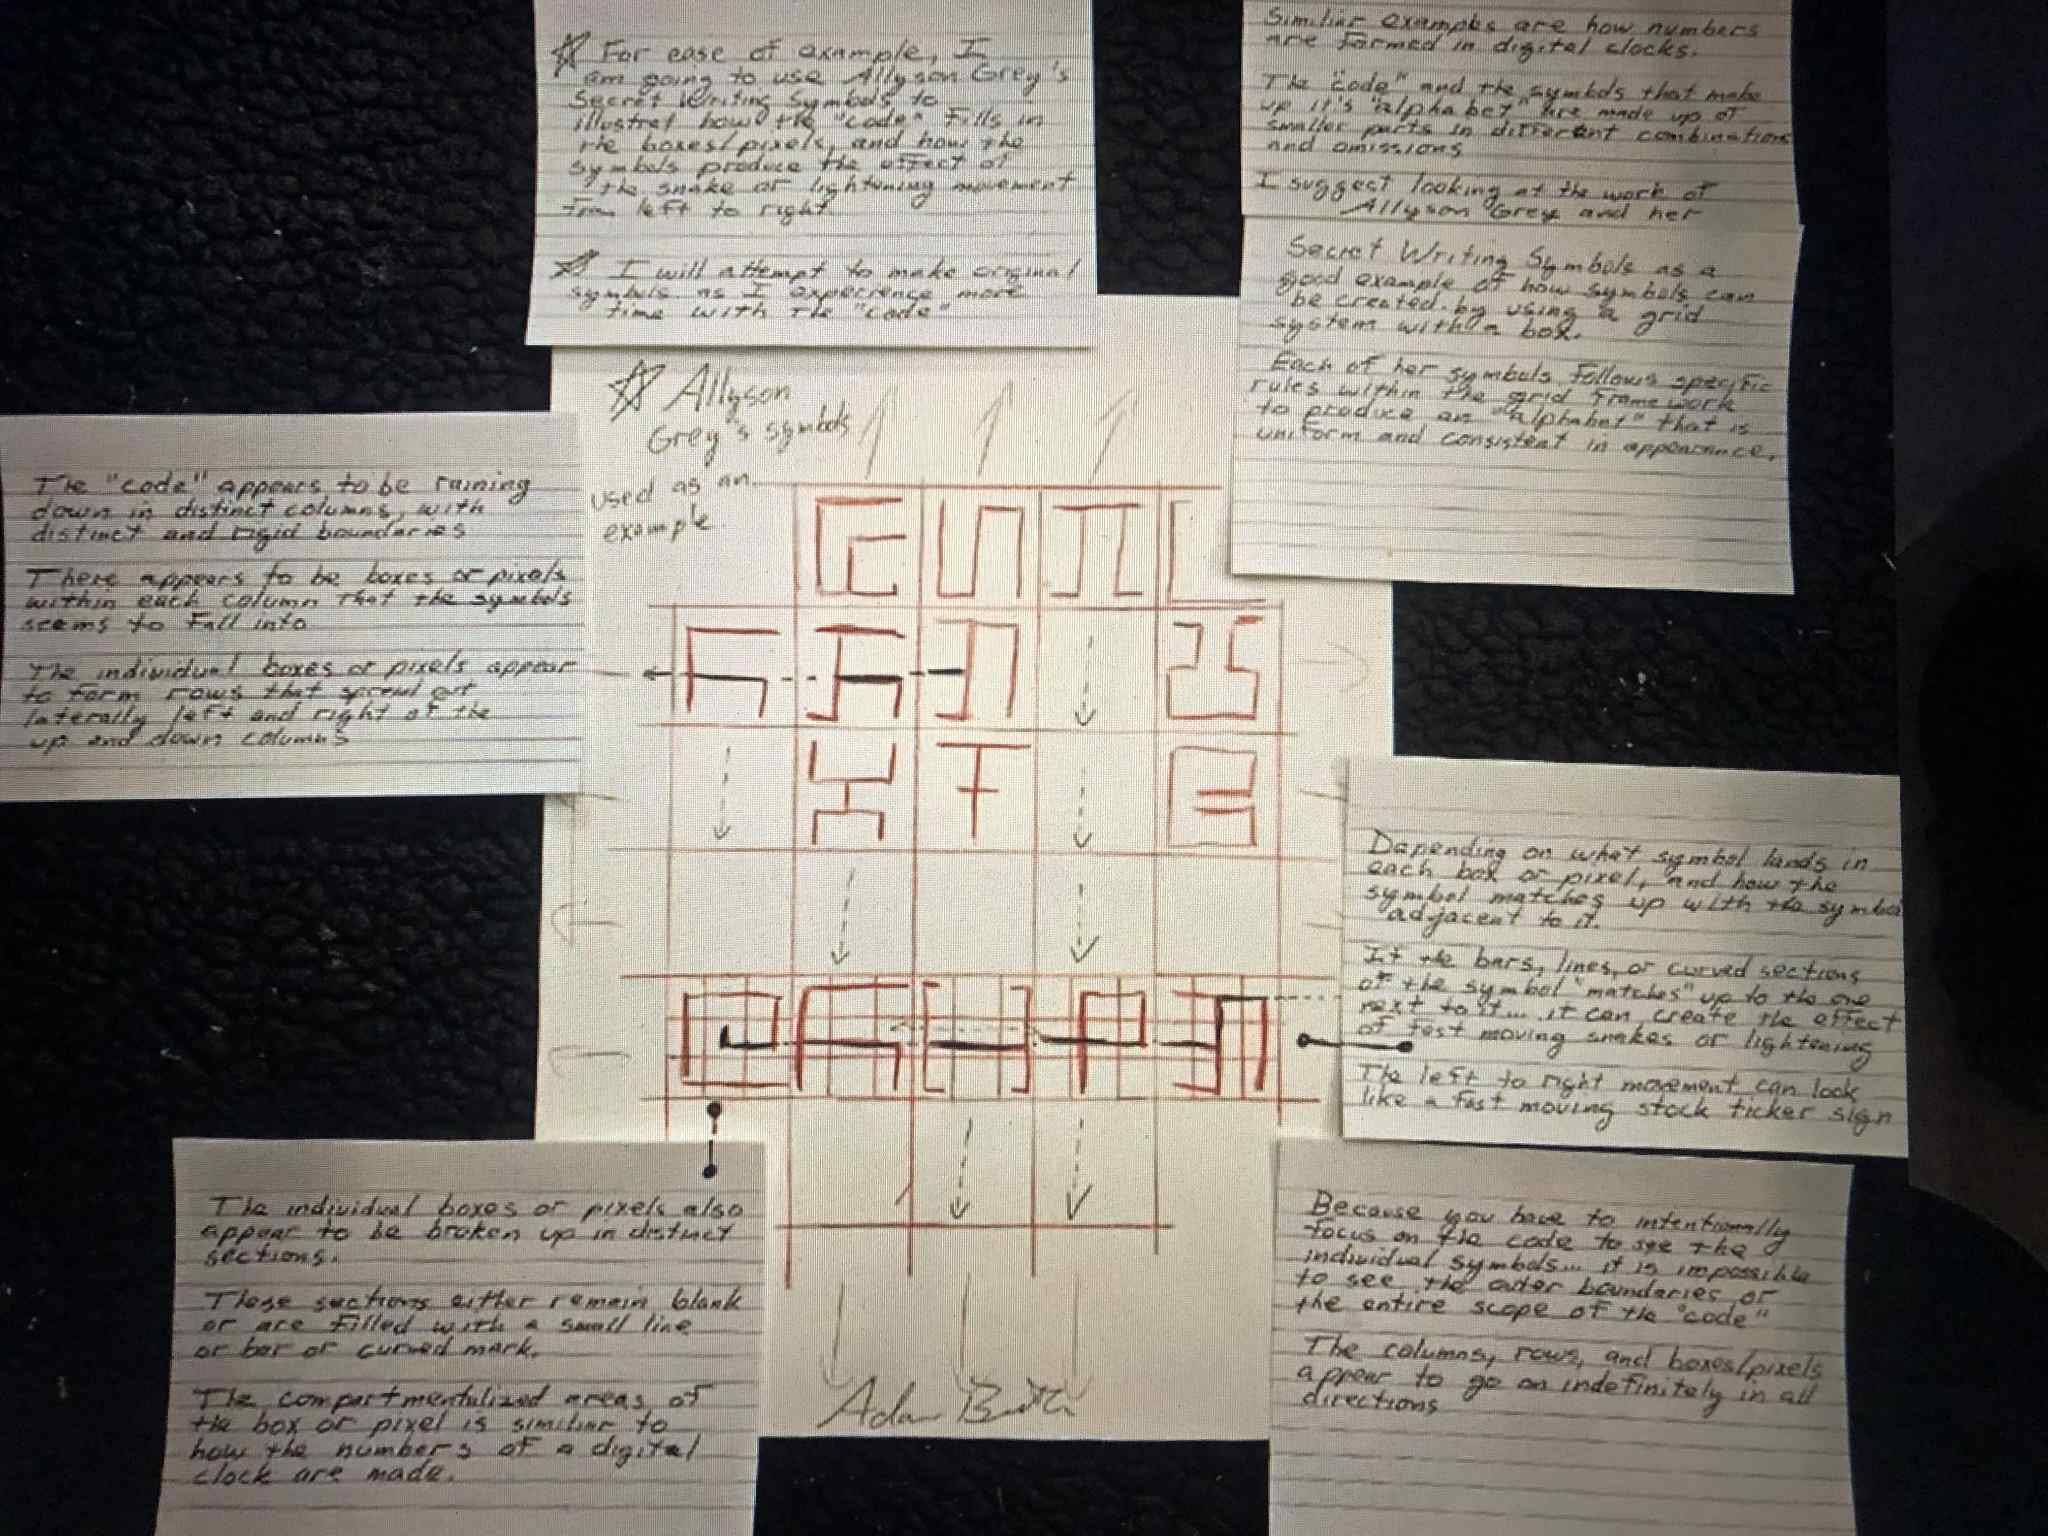 ☆ For ease of example, I
am going to use Allyson Grey's
Secret Writing Symbols to
illustrat how the "code" fills in
the boxes/pixels, and how the
symbols produce the effect of
the snake or lightning movement
from left to right.
☆ I will attempt to make original
symbols as I experience more
time with the "code"
Similiar examples are how numbers
are formed in digital clocks.
The "code" and the symbols that make
up it's "alphabet" are made up of
smaller parts in different combinations
and omissions
I suggest looking at the work of
Allyson Grey and her
Secret Writing Symbols as a
good example of how symbols can
be created by using a grid
system with a box.
Each of her symbols follows specific
rules within the grid framework
to produce an "alphabet" that is
uniform and consistent in appearance.
☆ Allyson
Grey's symbols
used as an
example
The "code" appears to be raining
down in distinct columns, with
distinct and rigid boundaries
There appears to be boxes or pixels
within each column that the symbols
seems to fall into
The individual boxes or pixels appear
to form rows that spread out
laterally left and right of the
up and down columns
Depending on what symbol lands in
each box or pixel, and how the
symbol matches up with the symbol
adjacent to it.
If the bars, lines, or curved sections
of the symbol "matches" up to the one
next to it... it can create the effect
of fast moving snakes or lightening
The left to right movement can look
like a fast moving stock ticker sign
The individual boxes or pixels also
appear to be broken up in distinct
sections.
These sections either remain blank
or are filled with a small line
or bar or curved mark.
The compartmentalized areas of
the box or pixel is similiar to
how the numbers of a digital
clock are made.
Because you have to intentionally
focus on the code to see the
individual symbols... it is impossible
to see the outer boundaries or
the entire scope of the "code"
The columns, rows, and boxes/pixels
appear to go on indefinitely in all
directions
Adam